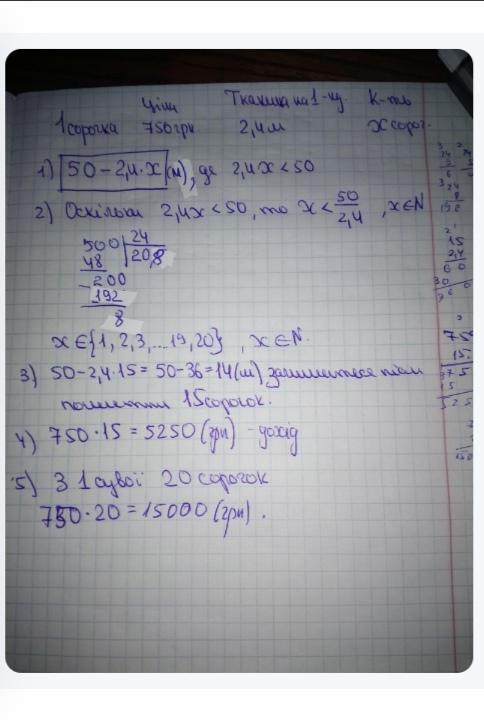 Ціни Тканина на 1-иу. К-ть
1сорочка 750грн 2,4м x сороч.
1) 50-2,4·x (м), де 2,4x<50
2) Оскільки 2,4x<50, то x<50/2,4, x∈N
500 | 24
48 20,8
-200
192
8
x∈{1,2,3,...19,20}, x∈N.
3) 50-2,4·15=50-36=14(м) залишиться після
пошиття 15сорочок.
4) 750·15=5250(грн) - дохід
5) З 1 сувої 20 сорочок
750·20=15000(грн).
15
2,4
60
30